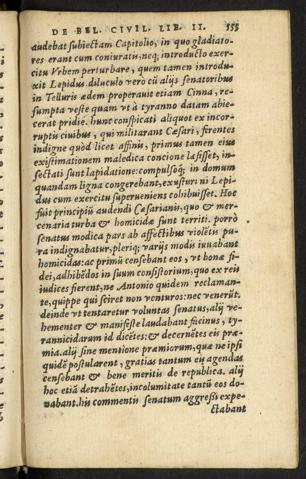 DE BEL. CIVIL. LIB. II. 555
audebat subiectam Capitolio, in quo gladiato-
res erant cum coniuratis: neq; introducto exer-
citu Vrbem perturbare, quem tamen introdu-
xit Lepidus. diluculo verò cū alijs senatoribus
in Telluris ædem properauit etiam Cinna, re-
sumpta veste quam vt à tyranno datam abie-
cerat pridie. hunc conspicati aliquot ex incor-
ruptis ciuibus, qui militarant Cæsari, ferentes
indigne quòd licet affinis, primus tamen eius
existimationem maledica concione læsisset, in-
sectati sunt lapidatione: compulsoq; in domum
quandam ligna congerebant, exusturi ni Lepi-
dus cum exercitu superueniens cohibuisset. Hoc
fuit principiū audendi Cæsarianis, quo & mer-
cenaria turba & homicidæ sunt territi. porrò
senatus modica pars ab affectibus violētis pu-
ra indignabatur, pleriq; varijs modis iuuabant
homicidas: ac primū censebant eos, vt bonæ fi-
dei, adhibēdos in suum consistorium, quo ex reis
iudices fierent, ne Antonio quidem reclaman-
te, quippe qui sciret non venturos: nec venerūt.
deinde vt tentaretur voluntas senatus, alij ve-
hementer & manifeste laudabant facinus, ty-
rannicidarum id dicētes: & decernētes eis præ-
mia. alij sine mentione præmiorum, quæ ne ipsi
quidē postularent, gratias tantum eis agendas
censebant & bene meritis de republica. alij
hoc etiā detrahētes, incolumitate tantū eos do-
nabant. his commentis senatum aggressi expe-
ctabant